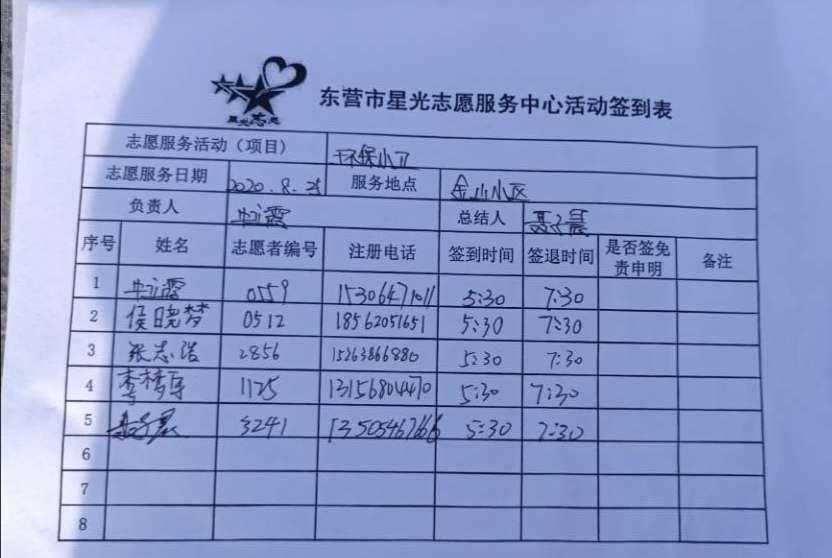 星光志愿
东营市星光志愿服务中心活动签到表
志愿服务活动（项目） 环保小卫
志愿服务日期 2020.8.25 服务地点 金山小区
负责人 总结人
序号 姓名 志愿者编号 注册电话 签到时间 签退时间 是否签免责申明 备注
1 0559 15306471011 5:30 7:30
2 侯晓梦 0512 18562051651 5:30 7:30
3 张志浩 2856 15263866880 5:30 7:30
4 1125 13156804470 5:30 7:30
5 3241 13505467666 5:30 7:30
6
7
8